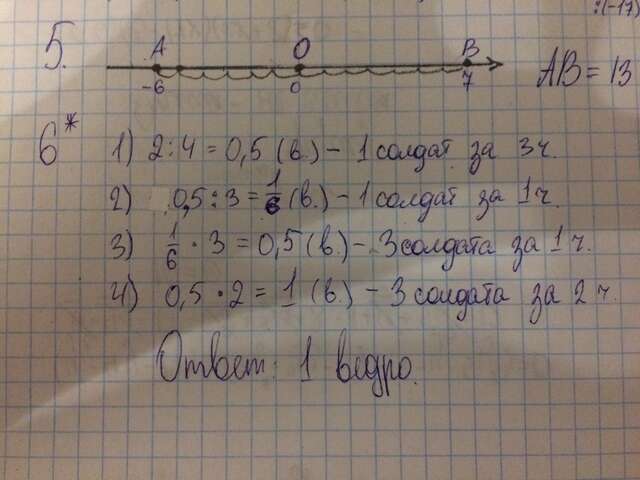 :(-17)
5.
A O B
-6 0 7
AB = 13
6*
1) 2:4 = 0,5 (в.) - 1 солдат за 3ч.
2) 0,5:3 = 1/6 (в.) - 1 солдат за 1ч.
3) 1/6 · 3 = 0,5 (в.) - 3 солдата за 1ч.
4) 0,5 · 2 = 1 (в.) - 3 солдата за 2ч.
Ответ: 1 ведро.